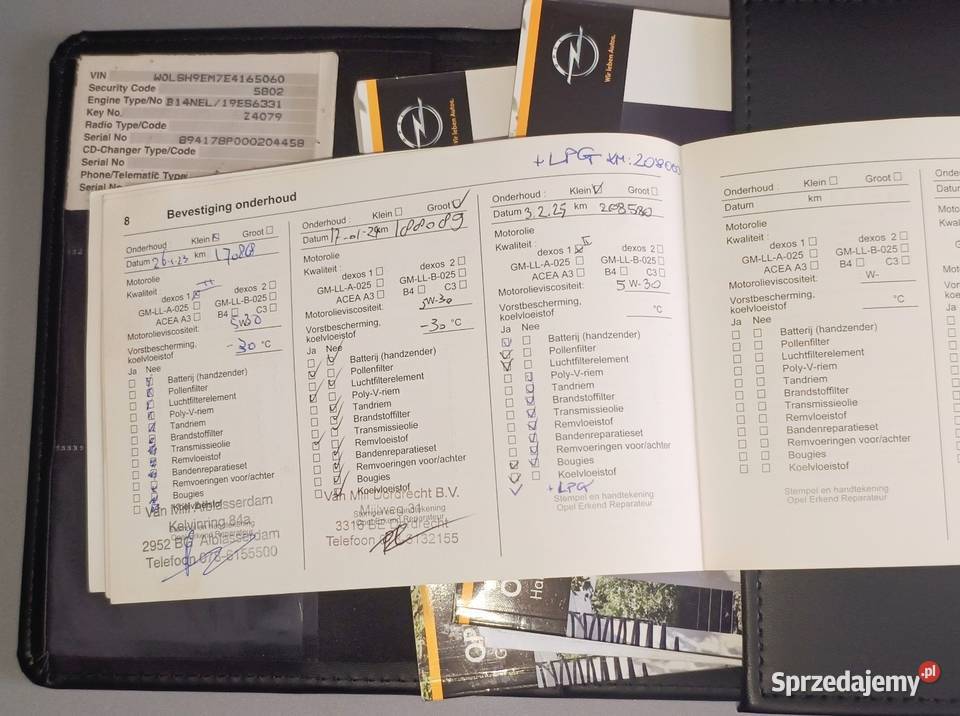 VIN W0LSH9EM7E4165060
Security Code 5802
Engine Type/No B14NEL/19ES6331
Key No. Z4079
Radio Type/Code
Serial No 894178P000204458
CD-Changer Type/Code
Serial No
Phone/Telematic Type
Serial No
Wir leben Autos.
Wir leben Autos.
+ LPG KM: 208000
8 Bevestiging onderhoud
Onderhoud Klein Groot
Datum 26-1-23 km
Motorolie
Kwaliteit :
dexos 1 dexos 2
GM-LL-A-025 GM-LL-B-025
ACEA A3 B4 C3
Motorolieviscositeit: 5W30
Vorstbescherming,
koelvloeistof -30 °C
Ja Nee
Batterij (handzender)
Pollenfilter
Luchtfilterelement
Poly-V-riem
Tandriem
Brandstoffilter
Transmissieolie
Remvloeistof
Bandenreparatieset
Remvoeringen voor/achter
Bougies
Koelvloeistof
Van Mill Alblasserdam
Kelvinring 84a
2952 BG Alblasserdam
Telefoon 078-6155500
Onderhoud : Klein Groot
Datum 17-01-24 km 188089
Motorolie
Kwaliteit :
dexos 1 dexos 2
GM-LL-A-025 GM-LL-B-025
ACEA A3 B4 C3
Motorolieviscositeit: 5W-30
Vorstbescherming,
koelvloeistof -30 °C
Ja Nee
Batterij (handzender)
Pollenfilter
Luchtfilterelement
Poly-V-riem
Tandriem
Brandstoffilter
Transmissieolie
Remvloeistof
Bandenreparatieset
Remvoeringen voor/achter
Bougies
Koelvloeistof
Van Mill Dordrecht B.V.
Mijlweg 31
Stempel en handtekening
Opel Erkend Reparateur
Telefoon
Onderhoud : Klein Groot
Datum 3.2.25 km 208580
Motorolie
Kwaliteit :
dexos 1 dexos 2
GM-LL-A-025 GM-LL-B-025
ACEA A3 B4 C3
Motorolieviscositeit: 5W-30
Vorstbescherming,
koelvloeistof °C
Ja Nee
Batterij (handzender)
Pollenfilter
Luchtfilterelement
Poly-V-riem
Tandriem
Brandstoffilter
Transmissieolie
Remvloeistof
Bandenreparatieset
Remvoeringen voor/achter
Bougies
Koelvloeistof
+ LPG
Stempel en handtekening
Opel Erkend Reparateur
Onderhoud : Klein Groot
Datum km
Motorolie
Kwaliteit :
dexos 1 dexos 2
GM-LL-A-025 GM-LL-B-025
ACEA A3 B4 C3
Motorolieviscositeit: W-
Vorstbescherming,
koelvloeistof °C
Ja Nee
Batterij (handzender)
Pollenfilter
Luchtfilterelement
Poly-V-riem
Tandriem
Brandstoffilter
Transmissieolie
Remvloeistof
Bandenreparatieset
Remvoeringen voor/achter
Bougies
Koelvloeistof
Stempel en handtekening
Opel Erkend Reparateur
Sprzedajemy.pl